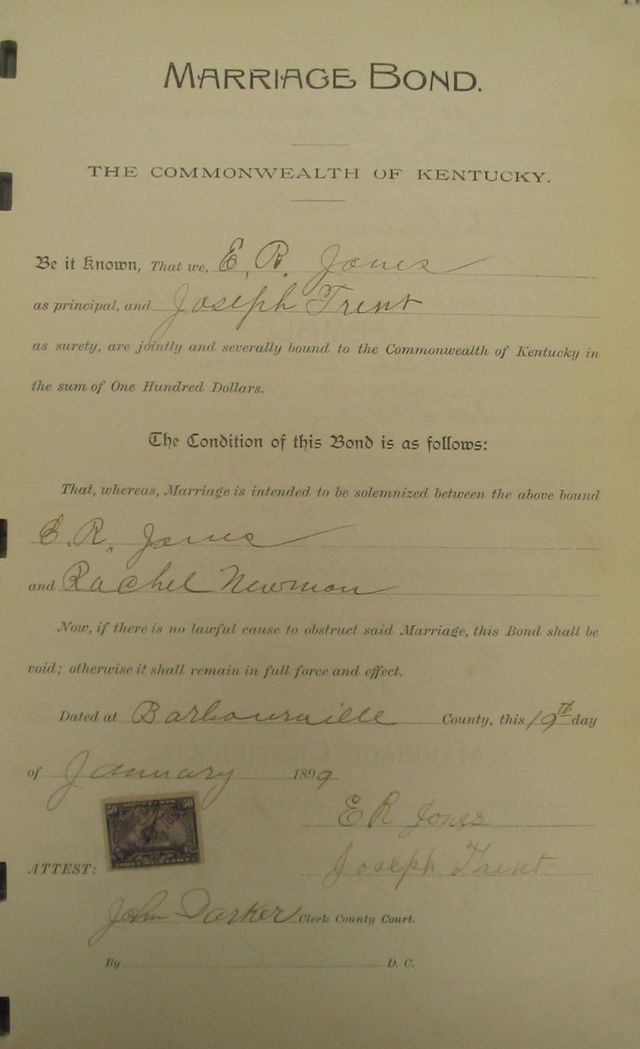 MARRIAGE BOND.
THE COMMONWEALTH OF KENTUCKY.
Be it Known, That we, E. R. Jones
as principal, and Joseph Trent
as surety, are jointly and severally bound to the Commonwealth of Kentucky in
the sum of One Hundred Dollars.
The Condition of this Bond is as follows:
That, whereas, Marriage is intended to be solemnized between the above bound
E. R. Jones
and Rachel Newman
Now, if there is no lawful cause to obstruct said Marriage, this Bond shall be
void; otherwise it shall remain in full force and effect.
Dated at Barbourville County, this 19th day
of January 1899
E R Jones
50 50
ATTEST: Joseph Trent
John Parker Clerk County Court.
By D. C.